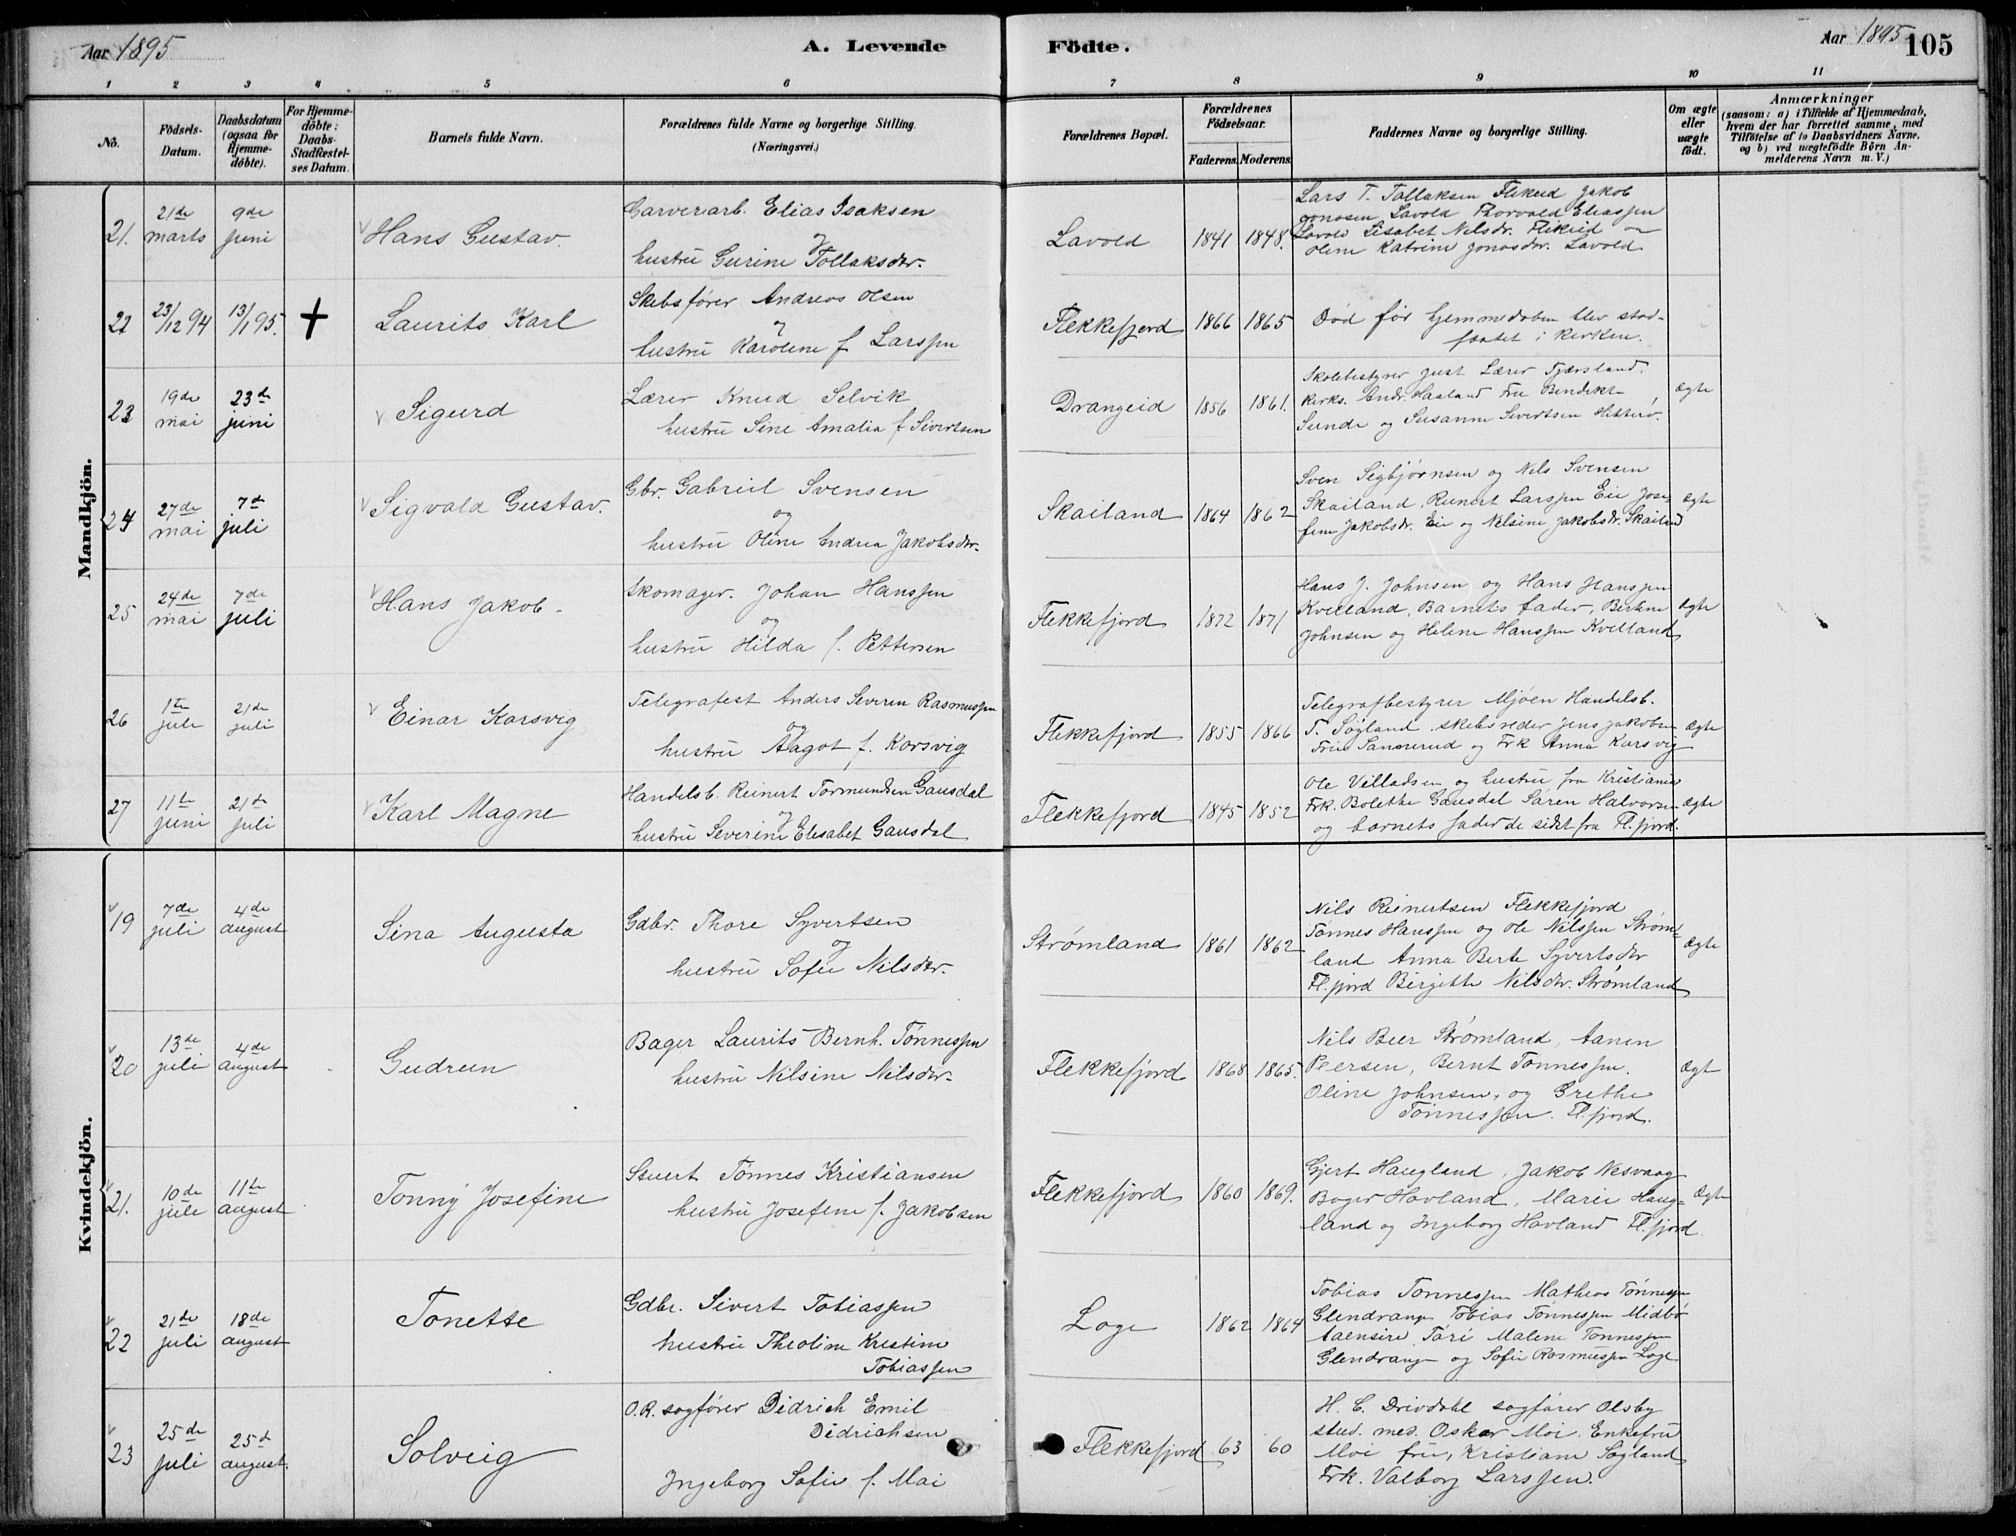 Aar 1895
A. Levende
Födte.
Aar 1895
105
1 2 3 4 5 6 7 8 9 10 11
No.
Födsels-Datum.
Daabsdatum (ogsaa for Hjemme-döbte).
For Hjemme-döbte: Daabs-Stadfæstel-ses Datum.
Barnets fulde Navn.
Forældrenes fulde Navne og borgerlige Stilling.
(Næringsvei.)
Forældrenes Bopæl.
Forældrenes Födselsaar.
Faderens. Moderens.
Faddernes Navne og borgerlige Stilling.
Om ægte eller uægte födt.
Anmærkninger
(saasom: a) i Tilfælde af Hjemmedaab,
hvem der har forrettet samme, med
Tilföielse af to Daabsvidners Navne,
og b) ved uægtefödte Börn An-
melderens Navn m. V.)
Mandkjön.
21. 21de marts 9de juni
Hans Gustav.
Garverarb. Elias Isaksen
og
hustru Gurine Tollaksdtr.
Lavold 1841 1848.
Lars T. Tallaksen Flikeid Jakob
Jonasen Lavold Thorvald Eliassen
Lavold Lisabet Nilsdr. Flikeid og
Oline Katrine Jonasdr. Lavold
22 23/12 94 13/1 95. +
Laurits Karl
Skibsfører Andreas Olsen
og
hustru Karoline f Larssen
Flekkefjord 1866 1865
Død før hjemmedaben blev stad-
fæstet i kirken.
23 19de mai 23de juni
Sigurd
Lærer Knud Selvik
hustru Sine Amalia f Sivertsen
Drangeid 1856 1861.
Skolebestyrer Just Lærer Fjærsland,
Kirks. Andr. Haaland Fru Bendikte
Sunde og Susanne Sivertsen Hitterø.
Ægte
24 27de mai 7de juli
Sigvald Gustav.
Gbr. Gabriel Svensen
og
hustru Oline Andrea Jakobsdtr.
Skailand 1864 1862
Sven Sigbjørnsen og Nils Svensen
Skailand, Reinert Larssen Eie Jose-
fine Jakobsdr. Eie og Nilsine Jakobsdr. Skailand
Ægte
25 24de mai 7de juli
Hans Jakob.
Skomager. Johan Hanssen
og
hustru Hilda f. Pettersen
Flekkefjord 1872 1871
Hans J. Johnsen og Hans Hanssen
Kvelland, Barnets fader, Bertine
Johnsen og Helene Hanssen Kvelland
Ægte
26 1te juli 21de juli
Einar Karsvig
Telegrafest Anders Severin Rasmussen
og
hustru Aagot f. Korsvig
Flekkefjord 1855 1866
Telegrafbestyrer Mjøen Handelsb.
T. Søyland skibsreder Jens Jakobsen
Fru Sannerud og Frk Anna Karsvig
Ægte
27 11te juni 21de juli
Karl Magne
Handelsb. Reinert Tormundsen Gausdal
og
hustru Severine Elisabet Gausdal
Flekkefjord 1845 1852
Ole Villadsen og hustru fra Kristiania
Frk. Bolette Gausdal Søren Halvorsen
og barnets fader de sidst fra Fl.fjord.
Ægte
Kvindekjön.
19 7de juli 4de august
Sina Augusta
Gdbr. Thore Syvertsen
og
hustru Sofie Nilsdtr.
Strømland 1861 1862
Nils Reinertsen Flekkefjord
Tønnes Hanssen og Ole Nilssen Strøm-
land Anna Berte Syvertsdtr
Fl.fjord Birgitte Nilsdtr. Strømland
Ægte
20 13de juli 4de august
Gudrun
Bager Laurits Bernh. Tønnessen
hustru Nilsine Nilsdtr.
Flekkefjord 1868 1865.
Nils Beer Strømland, Aanen
Peersen, Bernt Tønnessen.
Oline Johnsen, og Grethe
Tønnessen. Fl.fjord.
Ægt
21. 10de juli 11te august
Tonny Josefine
Stuert Tønnes Kristiansen
hustru Josefine f. Jakobsen
Flekkefjord 1860 1869.
Gjert Haugland, Jakob Nesvaag
Bager Hovland, Marie Haug-
land og Ingeborg Havland Fl.fjord
Ægte
22 21de juli 18de august
Tonette
Gdbr. Sivert Tobiassen
hustru Theoline Kristine
Tobiassen
Loge 1862 1864
Tobias Tønnessen Mathias Tønnessen
Glendrange Tobias Tønnessen Midbø
Aaensire Tøri Malene Tønnessen
Glendrange og Sofie Rasmussen Loge
23 25de juli 25de august.
Solveig
O.R. sagfører Didrich Emil
Didrichsen
Ingeborg Sofie f. Moi
Flekkefjord 63 60
H. C. Drivdahl sagfører Olsby
stud. med. Oskar Moi. Enkefru
Moi fru, Kristiane Søyland
Frk. Valborg Larssen.